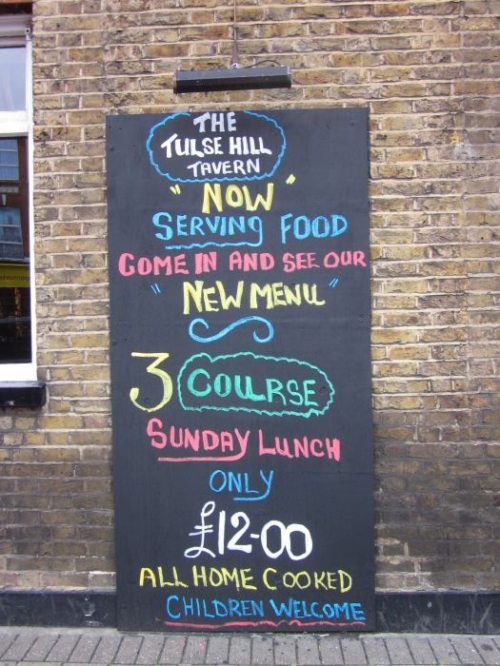 THE
TULSE HILL
TAVERN
"NOW"
SERVING FOOD
COME IN AND SEE OUR
"NEW MENU"
3 COURSE
SUNDAY LUNCH
ONLY
£12-00
ALL HOME COOKED
CHILDREN WELCOME